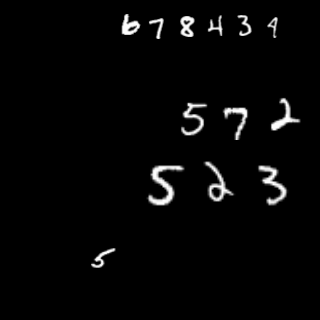 678439
572
523
5